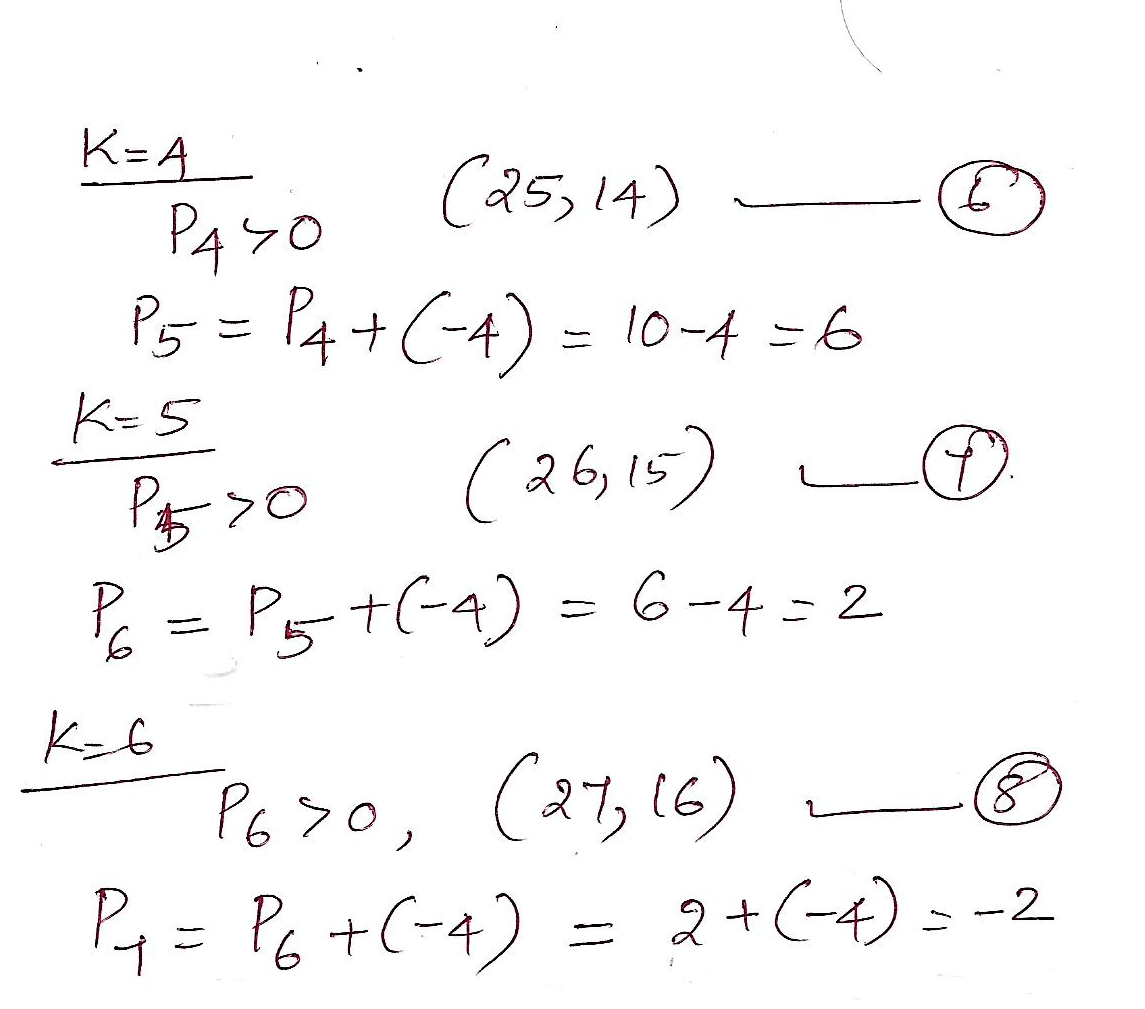 K=4
P4>0 (25,14) — 6
P5 = P4+(-4) = 10-4 = 6
K=5
P5>0 (26,15) — 7
P6 = P5+(-4) = 6-4 = 2
K=6
P6>0, (27,16) — 8
P7 = P6+(-4) = 2+(-4) = -2